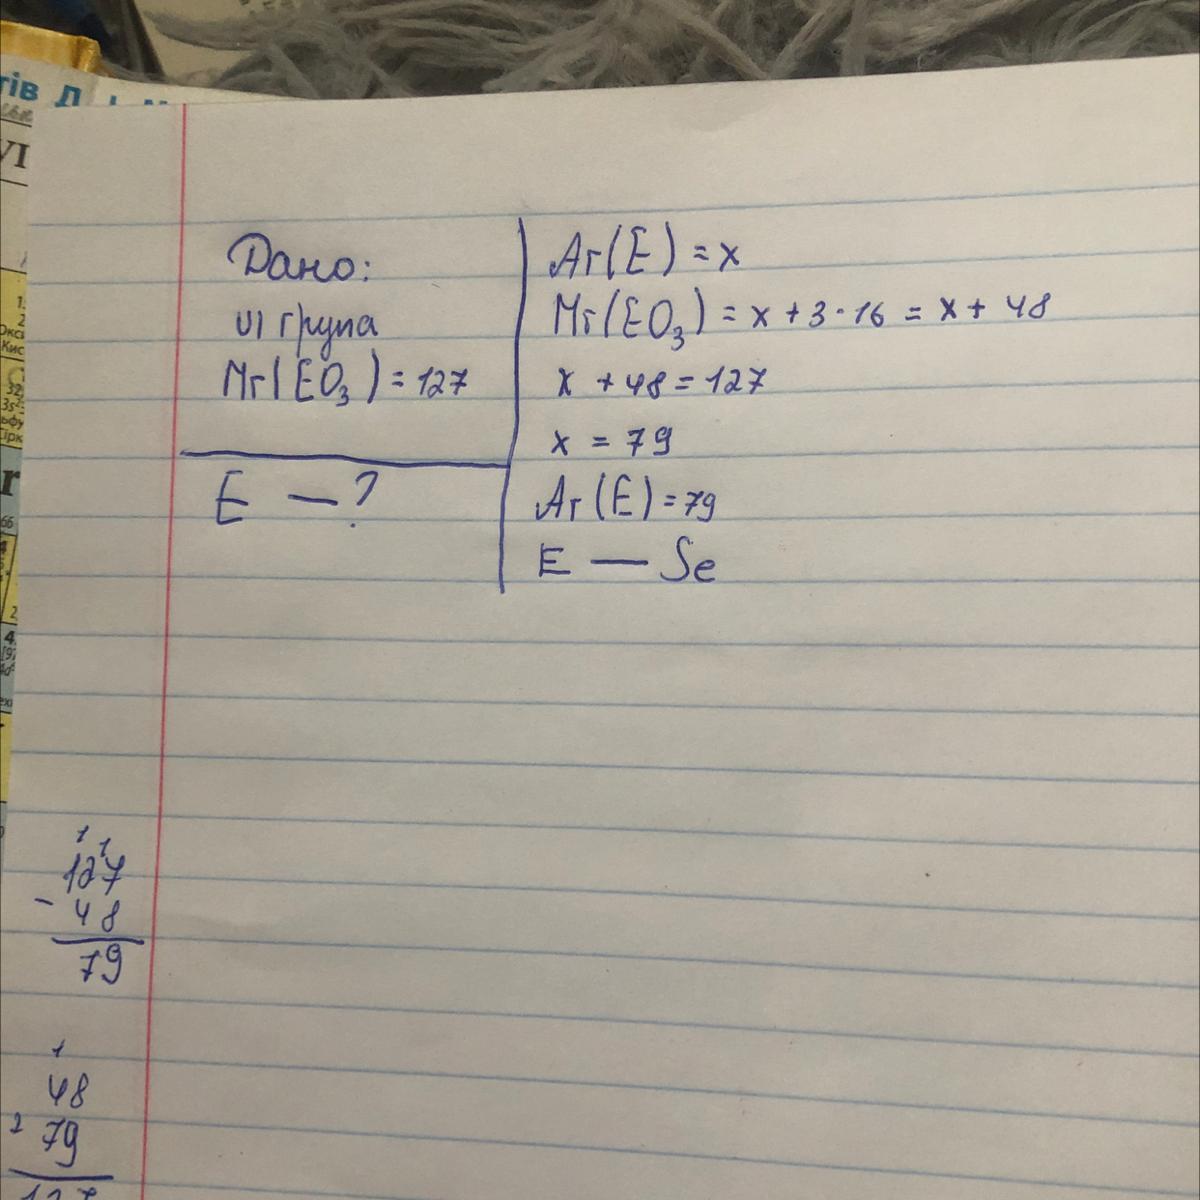 тів
VI
Дано:
VI група
Mr(EO₃) = 127
E — ?
Ar(E) = x
Mr(EO₃) = x + 3 · 16 = x + 48
x + 48 = 127
x = 79
Ar(E) = 79
E — Se
1 1
127
- 48
79
1
48
79
127